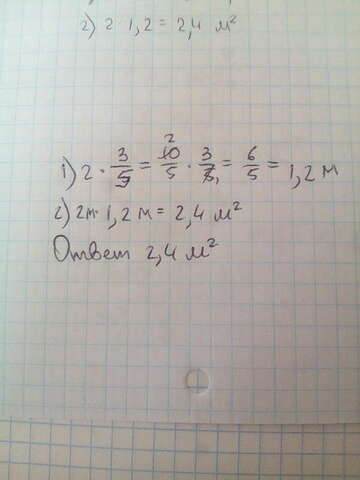 2) 2 1,2 = 2,4 м²
1) 2 · 3/5 = 10/5 · 3/5 = 6/5 = 1,2 м
2) 2м · 1,2 м = 2,4 м²
Ответ 2,4 м²